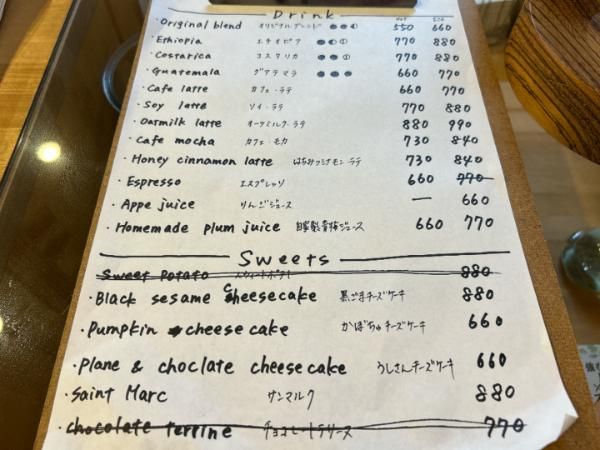 Drink
HOT ICE
・Original blend オリジナルブレンド 550 660
・Ethiopia エチオピア 770 880
・Costarica コスタリカ 770 880
・Guatemala グアテマラ 660 770
・Cafe latte カフェ・ラテ 660 770
・Soy latte ソイ・ラテ 770 880
・Oatmilk latte オーツミルク・ラテ 880 990
・Cafe mocha カフェ・モカ 730 840
・Honey cinnamon latte はちみつシナモン・ラテ 730 840
・Espresso エスプレッソ 660 770
・Appe juice りんごジュース — 660
・Homemade plum juice 自家製青梅ジュース 660 770
Sweets
・Sweet Potato スウィートポテト 880
・Black sesame cheesecake 黒ごまチーズケーキ 880
・Pumpkin cheese cake かぼちゃチーズケーキ 660
・Plane & choclate cheesecake うしさんチーズケーキ 660
・Saint Marc サンマルク 880
・chocolate terrine チョコレートテリーヌ 770